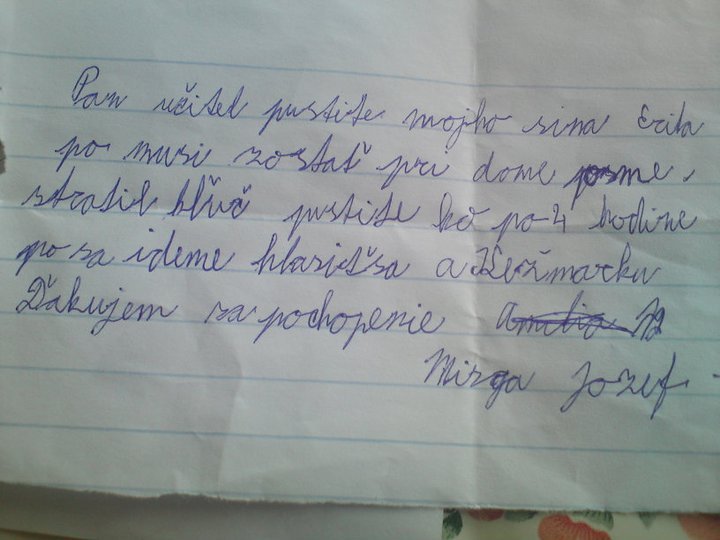 Pan učitel pustite mojho sina Erika
po musi zostať pri dome psme
stratil kľuč pustite ho po 4 hodine
po sa ideme hlasiť sa a Kežmarku
Ďakujem za pochopenie
Mirga Jozef